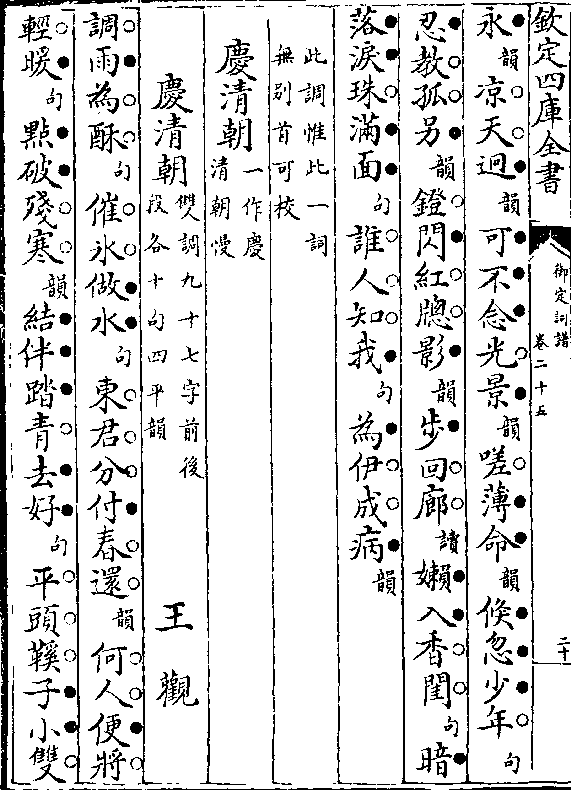 欽定四庫全書
御定詞譜 卷二十五
二十
永韻凉天迥韻可不念光景韻嗟薄命韻倏忽少年句
忍教孤另韻鐙閃紅牕影韻步回廊讀嬾入香閨句暗
落淚珠滿面句誰人知我句為伊成病韻
此調惟此一詞
無别首可校
慶清朝一作慶
清朝慢
慶清朝雙調九十七字前後
段各十句四平韻 王觀
調雨為酥句催氷做水句東君分付春還韻何人便將
輕暖句點破殘寒韻結伴踏青去好句平頭鞵子小雙